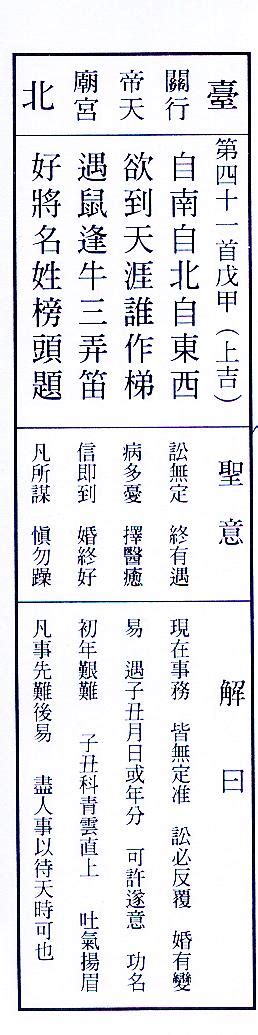 臺北
關行
帝天
廟宮
第四十一首戊甲(上吉)
自南自北自東西
欲到天涯誰作梯
遇鼠逢牛三弄笛
好將名姓榜頭題
聖意
訟無定 終有遇
病多憂 擇醫癒
信即到 婚終好
凡所謀 慎勿躁
解曰
現在事務 皆無定准 訟必反覆 婚有變
易 遇子丑月日或年分 可許遂意 功名
初年艱難 子丑科青雲直上 吐氣揚眉
凡事先難後易 盡人事以待天時可也